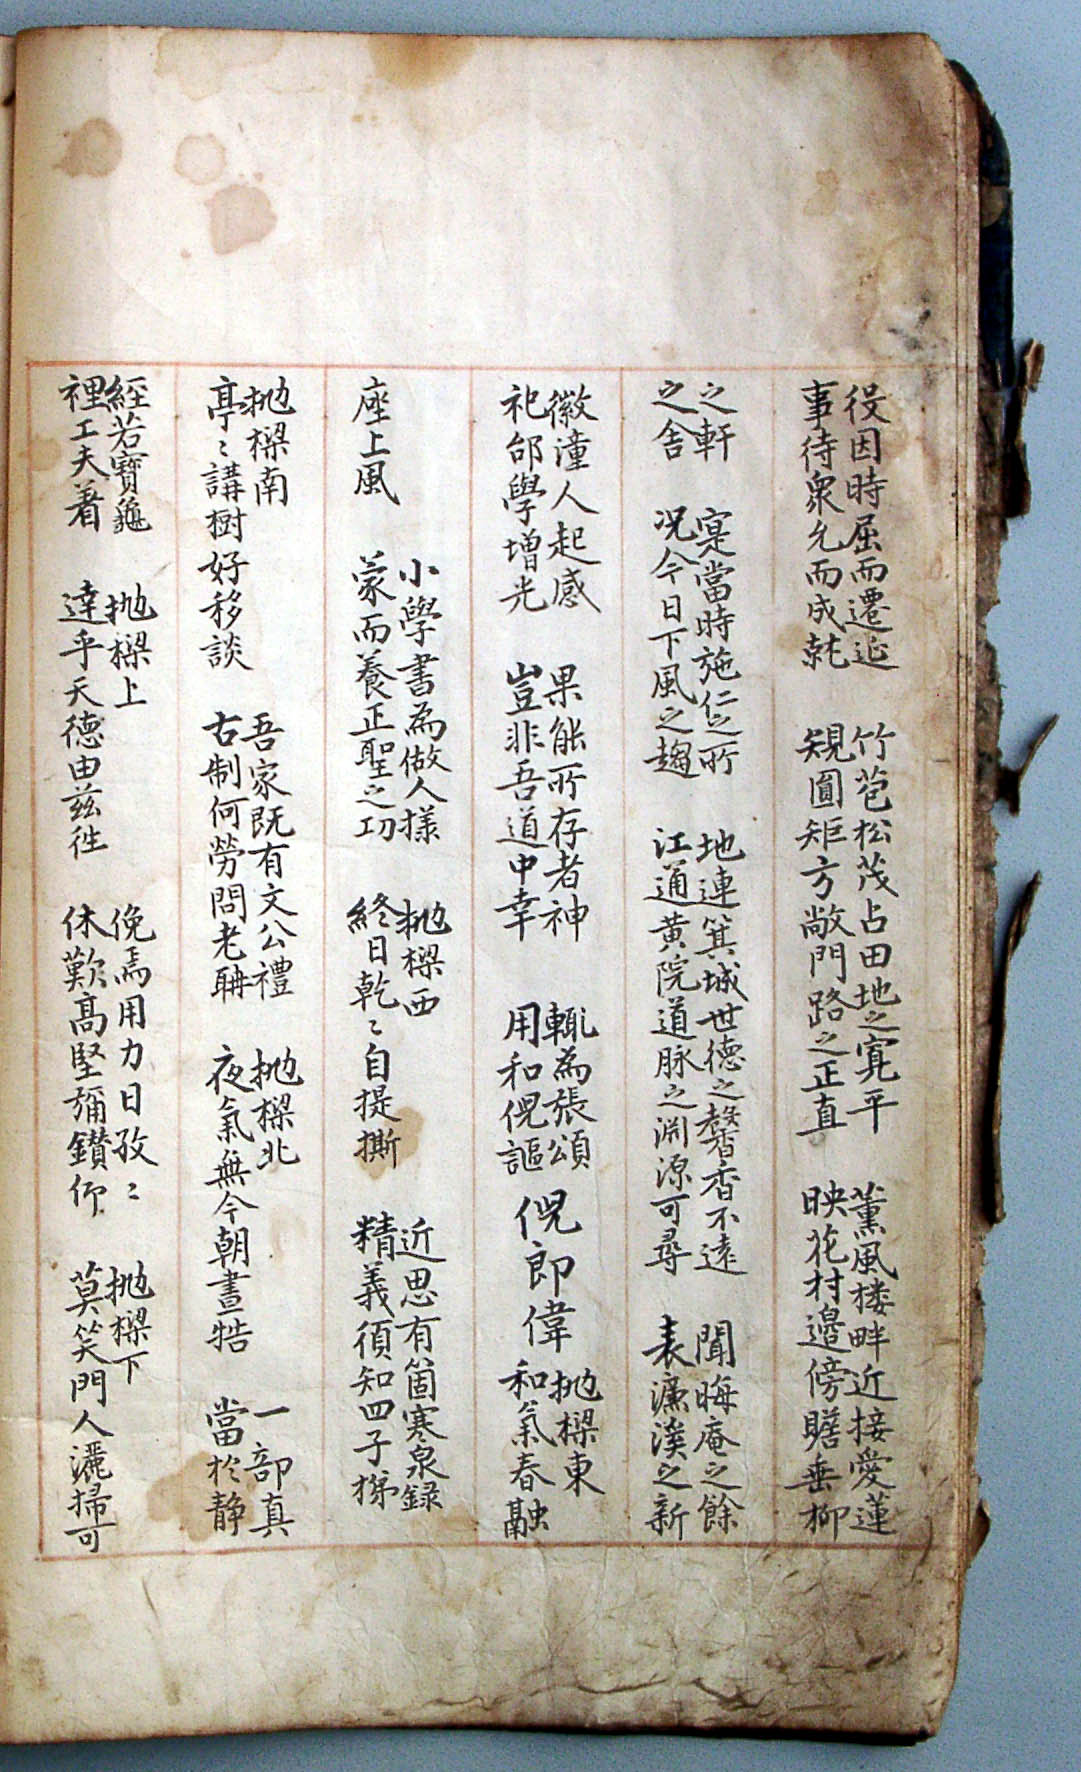 役因時屈而遷延
事待衆允而成就
竹苞松茂占田地之寬平
規圓矩方敞門路之正直
薰風楼畔近接愛蓮
映花村邊傍瞻垂柳
之軒
之舍
寔當時施仁之所
况今日下風之趨
地連箕城世德之馨香不遠
江通黄院道脉之淵源可尋
聞晦庵之餘
表濂溪之新
徽潼人起感
祀邰學增光
果能所存者神
豈非吾道中幸
輒為張頌
用和倪謳
倪郎偉
抛樑東
和氣春融
座上風
小學書為做人樣
蒙而養正聖之功
抛樑西
終日乾〻自提撕
近思有箇寒泉録
精義須知四子梯
抛樑南
亭〻講樹好移談
吾家既有文公禮
古制何勞問老聃
抛樑北
夜氣無今朝晝牿
一部真
當於静
經若寶龜
裡工夫着
抛樑上
達乎天德由茲往
俛焉用力日孜〻
休歎高堅彌鑽仰
抛樑下
莫笑門人灑掃可